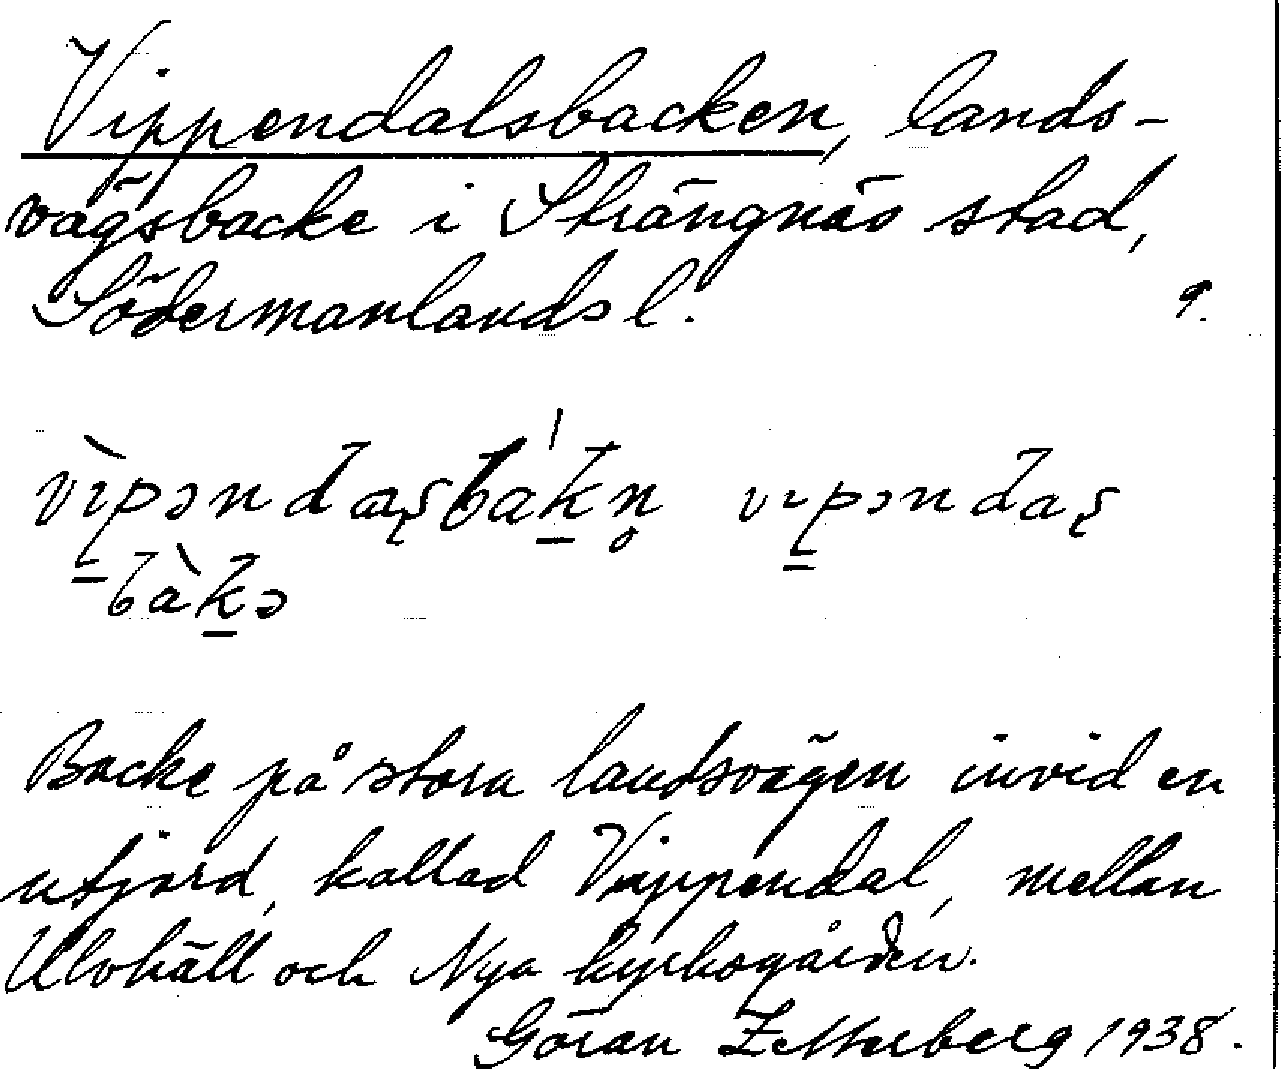 Vippendalsbacken, lands-
vägsbacke i Strängnäs stad,
Södermanlands l. 9.
vìpəndaʂbákn̥ vıpəndaʂ
bàkə
Backe på stora landsvägen invid en
utjord, kallad Vippendal, mellan
Ulvhäll och Nya kyrkogården.
Göran Zetterberg 1938.